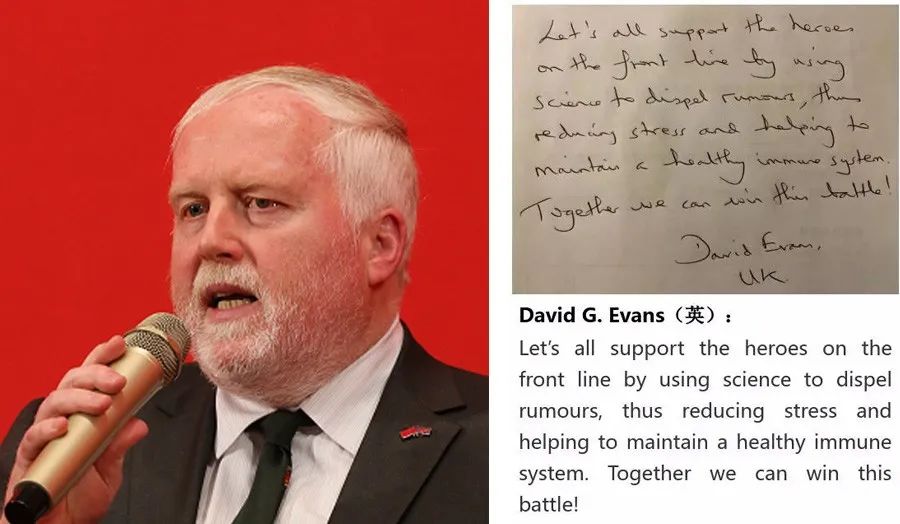 Let's all support the heroes
on the front line by using
science to dispel rumours, thus
reducing stress and helping to
maintain a healthy immune system.
Together we can win this battle!
David Evans,
UK
David G. Evans（英）：
Let’s all support the heroes on the
front line by using science to dispel
rumours, thus reducing stress and
helping to maintain a healthy immune
system. Together we can win this
battle!